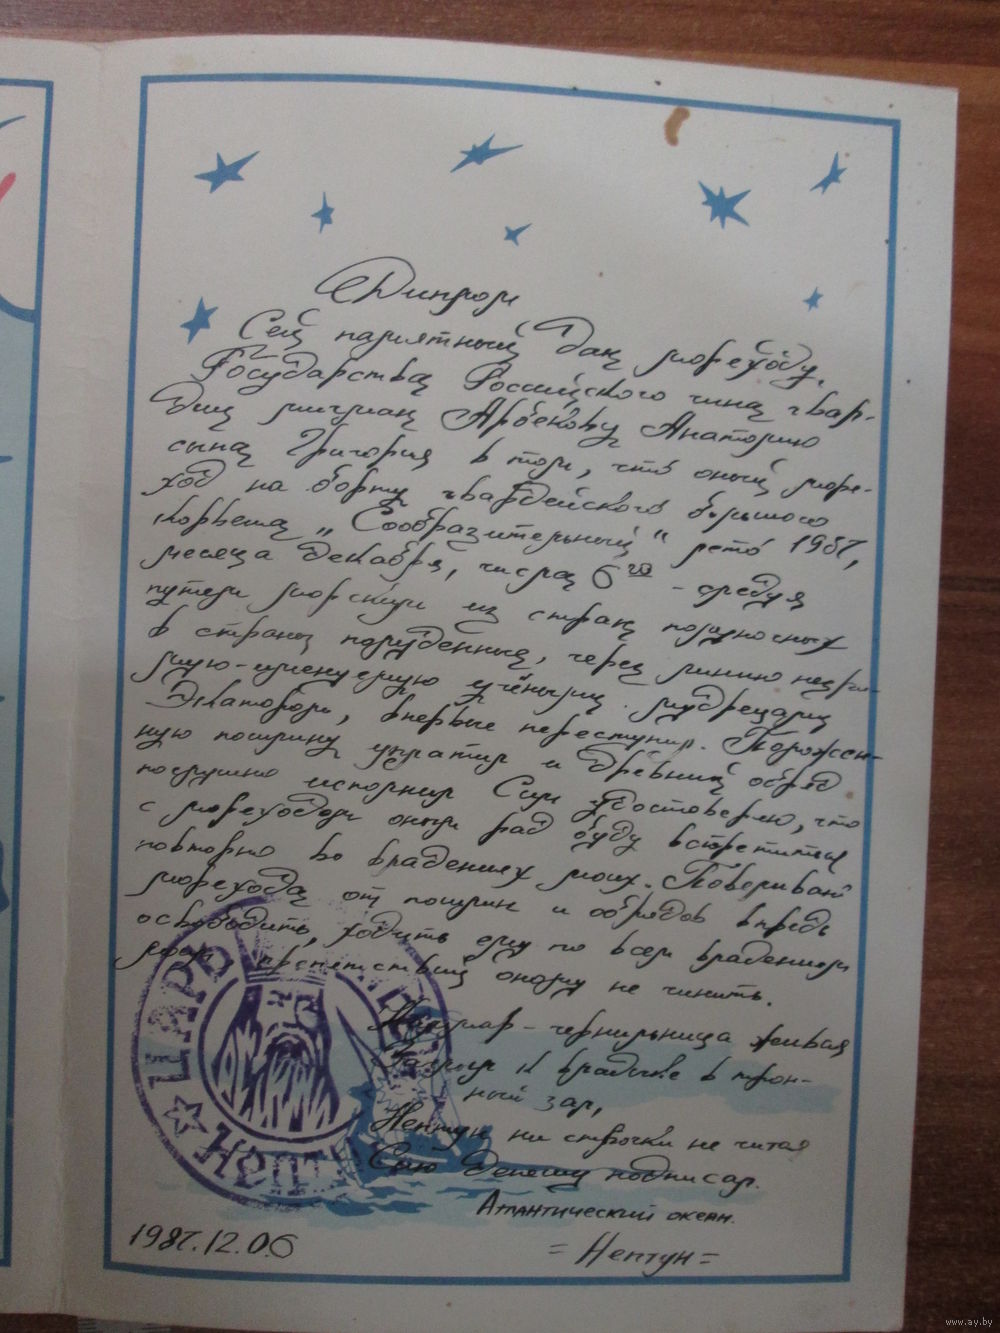 Диплом
Сей памятный дан мореходу
Государства Российского чина гвар-
дии мичман Арбекову Анатолию
сына Григория в том, что оный море-
ход на борту гвардейского большого
корвета „Сообразительный" лето 1987,
месяца декабря, числа 6го - следуя
путем морским из стран полуночных
в страны полуденные, через линию незри-
мую-именуемую учёными мудрецами
Экватором, впервые переступил. Положен-
ную пошлину уплатил и древний обряд
послушно исполнил Сим удостоверяю, что
с мореходом оным рад буду встретиться
повторно во владениях моих. Повелеваю
морехода от пошлин и обрядов впредь
освободить, ходить ему по всем владениям
моим препятствий оному не чинить.
Кальмар-чернильница живая
к владыке в трон-
ный зал,
Нептун ни строчки не читая
Сию депешу подписал.
Атлантический океан.
1987.12.06
=Нептун=
ЦАРЬ
НЕПТУН
www.ay.by